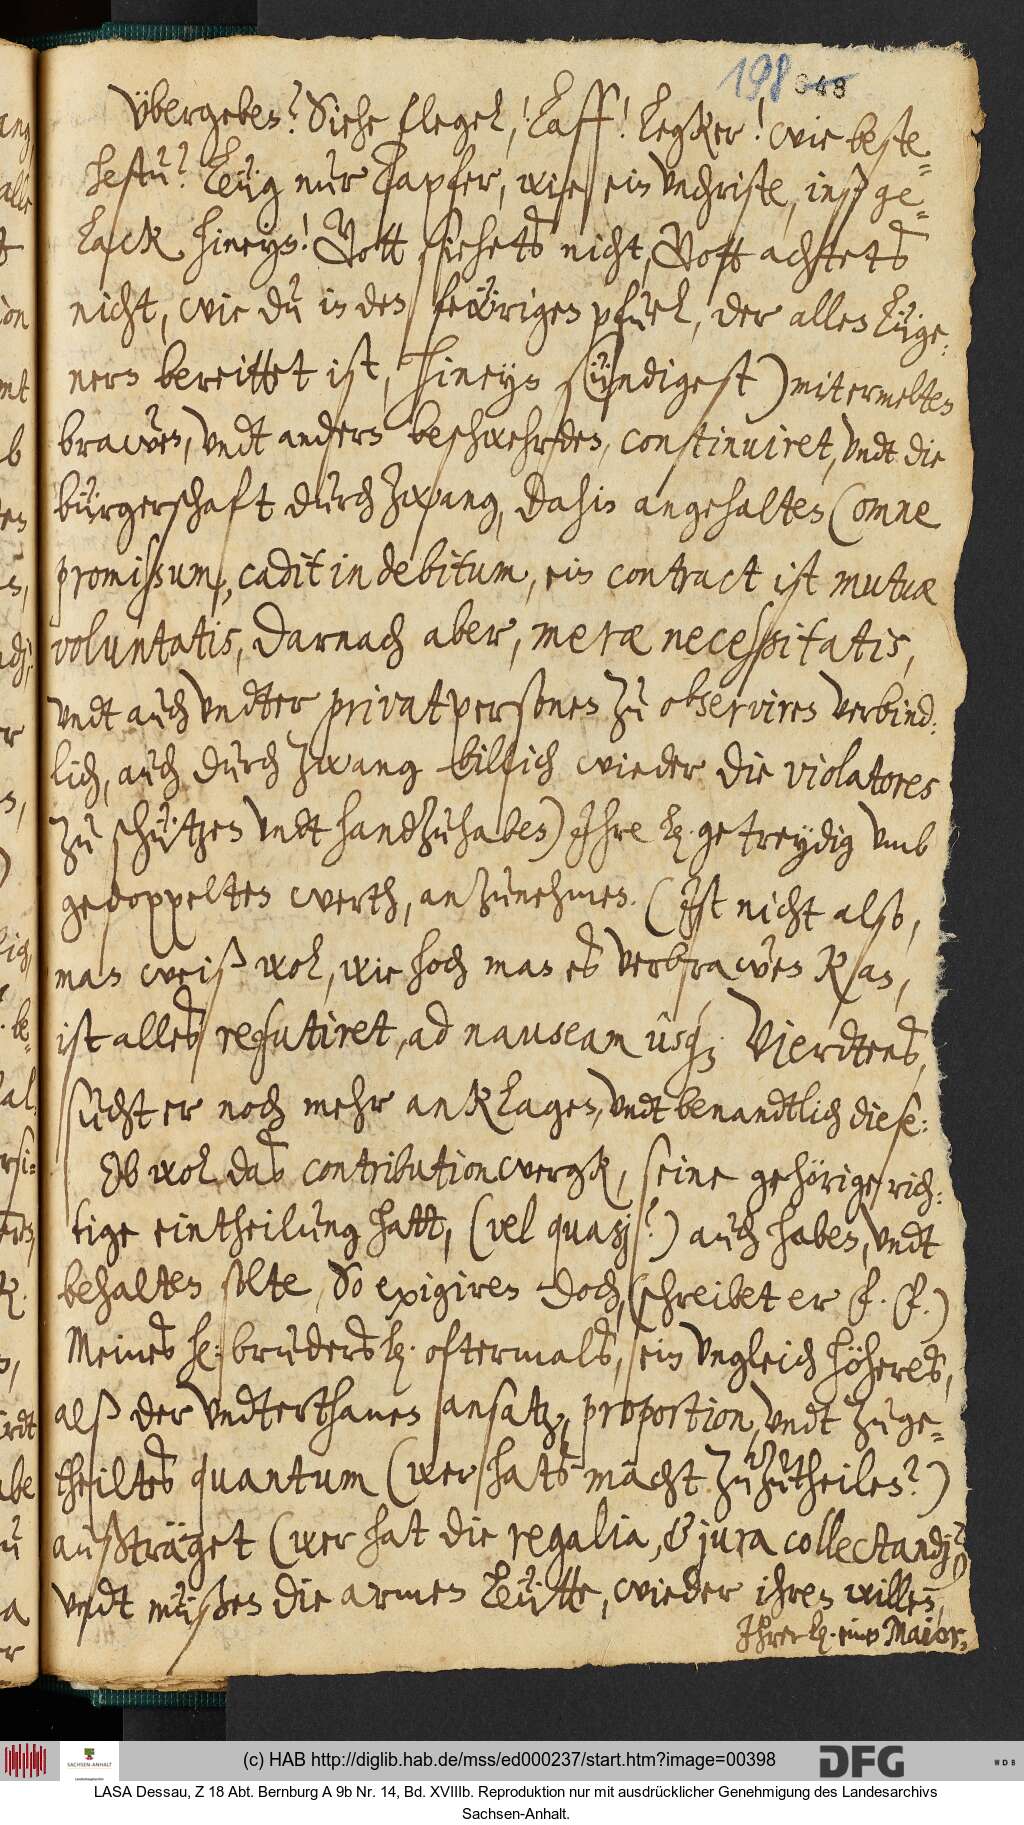 198 348
übergeben? Siehe flegel,! Laff! Legker! wie beste-
hestu? Leüg nur Tapfer, wie ein Unchriste, inß ge-
lack hineyn! Gott siehets nicht, Gott achtets
nicht, wie du in den feẅrigen pfuel, der allen Lüge-
nern bereittet ist, hineyn sündigest) mit ermelten
braẅen, undt andern beschwehrden, continuiret, undt die
bürgerschafft durch Zwang, dahin angehalten (omne
promissum, cadit in debitum, ein contract ist mutuæ
voluntatis, darnach aber, meræ necessitatis,
undt auch undter privatpersonen zu observiren verbind-
lich, auch durch Zwang billich wieder die violatores
zu schützen undt handzuhaben) Ihre L. getreydig umb
gedoppelten werth, anzunehmen. (Ist nicht also,
man weiß wol, wie hoch man es verbraẅen kan,
ist alles refutiret, ad nauseam usq. Vierdtens,
sucht er noch mehr anklagen, undt benandtlich diese:
Ob wol das contributionwergk, seine gehörige rich-
tige eintheilung hatt, (vel quasj?) auch haben, undt
behalten solte, So exigiren doch, (schreibet er F. F.)
Meines h: bruders L. oftermals, ein ungleich höheres,
alß der undterthanen ansatz, proportion, undt zuge-
theiltes quantum (wer hats macht zuzutheilen?)
außträget (wer hat die regalia, & jura collectandj?)
undt müßen die armen Leütte, wieder ihren willen,
Ihrer L. einen Maior-
(c) HAB http://diglib.hab.de/mss/ed000237/start.htm?image=00398
SACHSEN-ANHALT
DFG
WDB
LASA Dessau, Z 18 Abt. Bernburg A 9b Nr. 14, Bd. XVIIIb. Reproduktion nur mit ausdrücklicher Genehmigung des Landesarchivs
Sachsen-Anhalt.